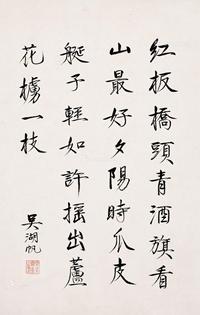 红板橋頭青酒旗看
山最好夕陽時瓜皮
艇子輕如許摇出蘆
花櫓一枝
吳湖帆